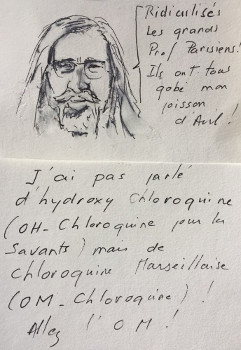 Ridiculisés
Les grands
Prof Parisiens!
Ils ont tous
gobé mon
poisson
d'Avril!
J'ai pas parlé
d'hydroxy Chloroquine
(OH-Chloroquine pour les
Savants) mais de
Chloroquine Marseillaise
(OM-Chloroquine)!
Allez l'OM!